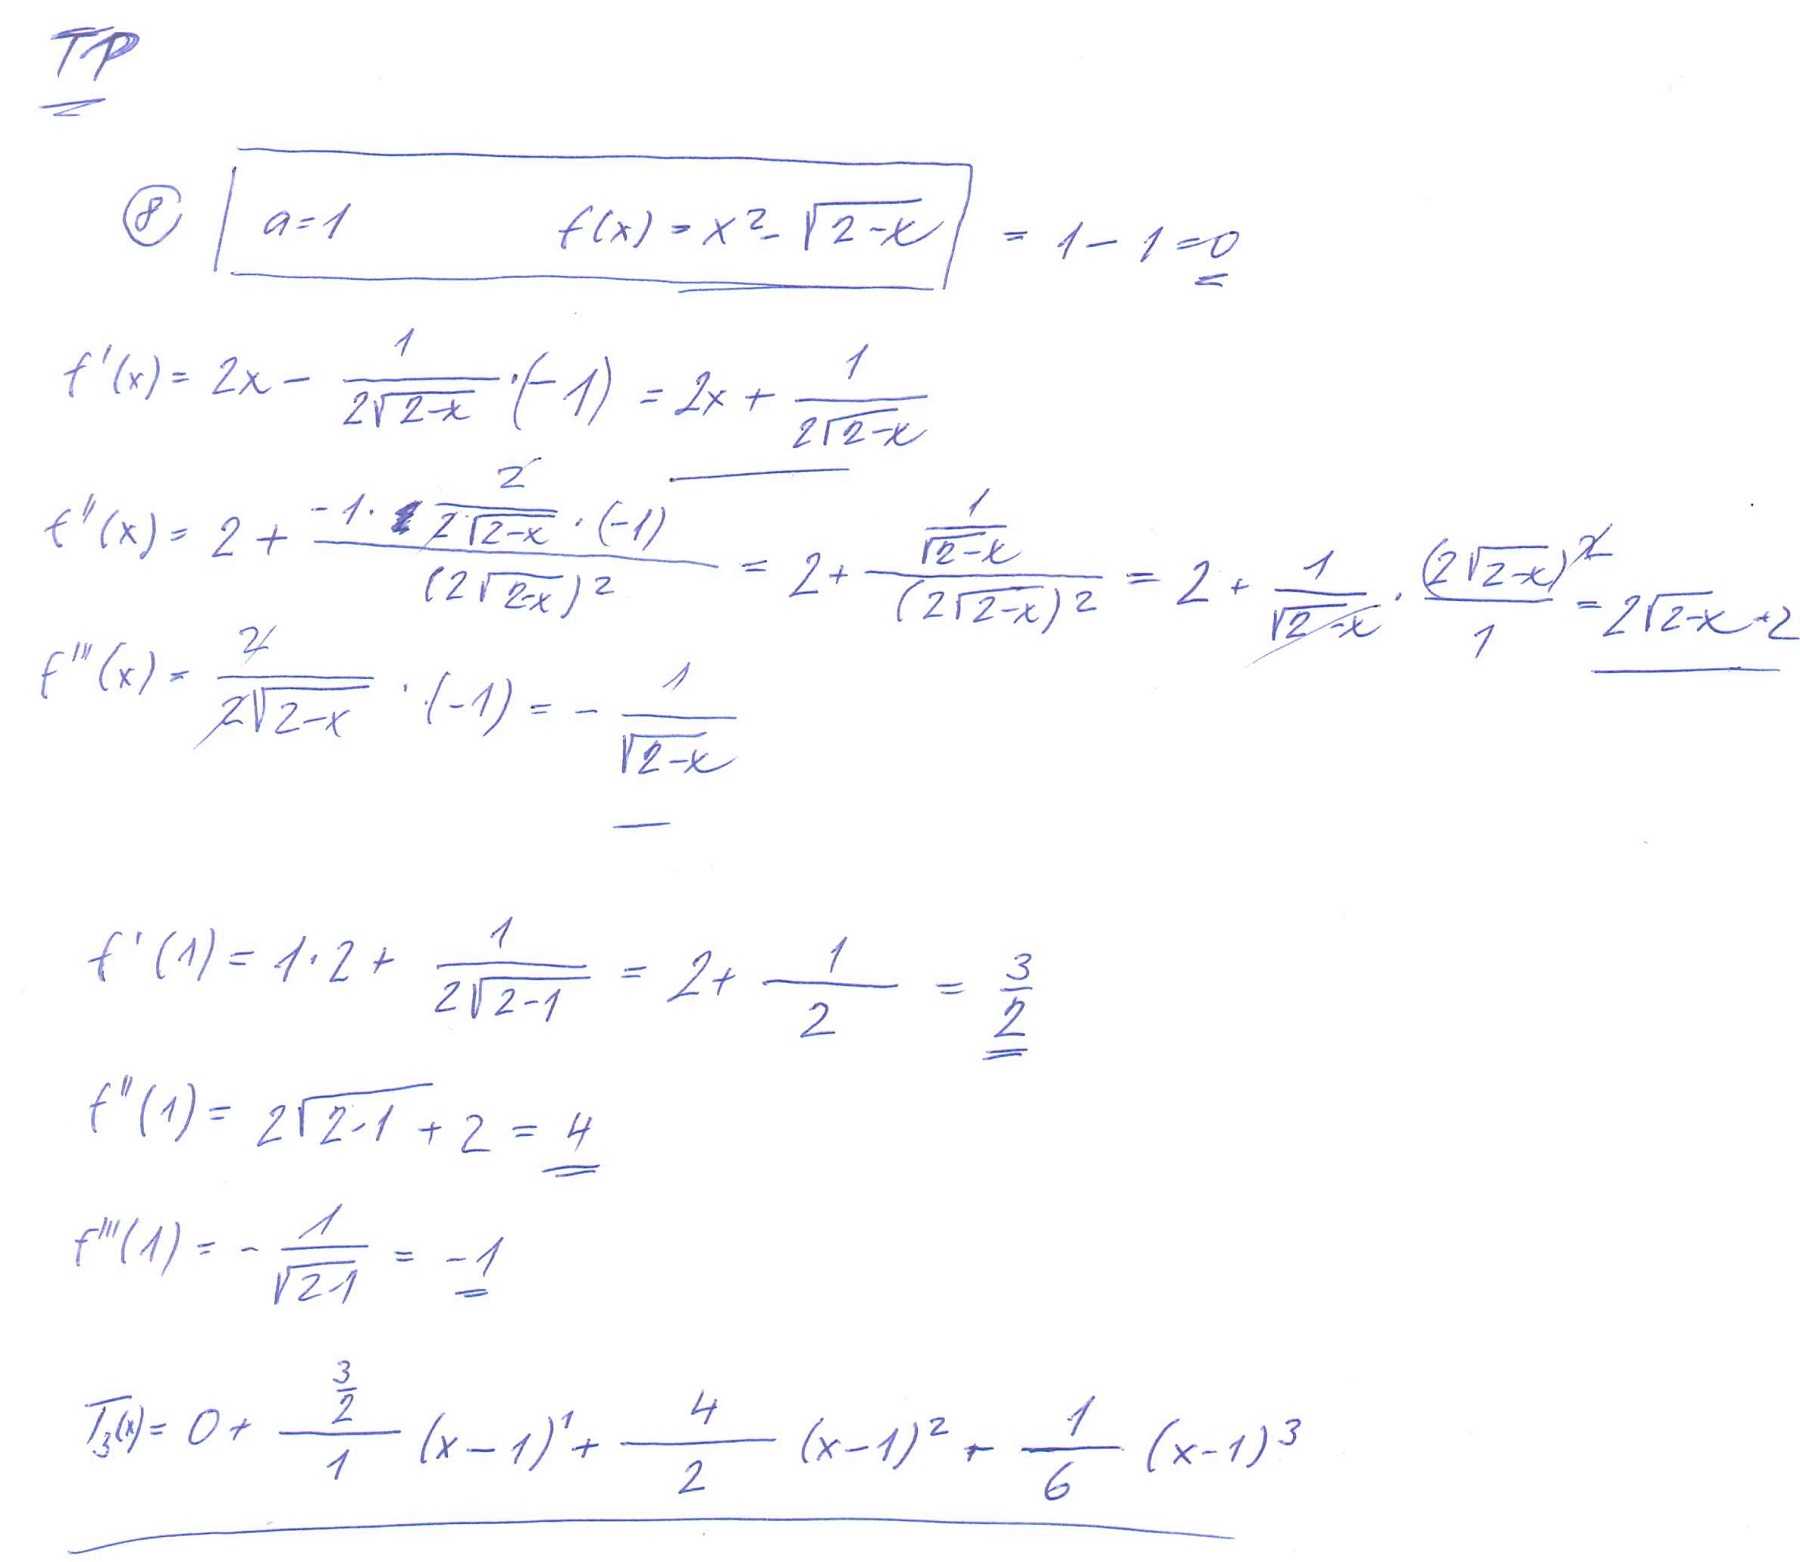 TP
⑧ a=1 f(x) = x² - √(2-x) = 1 - 1 = 0
f'(x) = 2x - 1/(2√(2-x)) · (-1) = 2x + 1/(2√(2-x))
f''(x) = 2 + (-1 · 2/(2√(2-x)) · (-1))/(2√(2-x))² = 2 + (1/√(2-x))/(2√(2-x))² = 2 + 1/√(2-x) · (2√(2-x))²/1 = 2√(2-x) + 2
f'''(x) = 2/(2√(2-x)) · (-1) = - 1/√(2-x)
f'(1) = 1·2 + 1/(2√(2-1)) = 2 + 1/2 = 3/2
f''(1) = 2√(2-1) + 2 = 4
f'''(1) = - 1/√(2-1) = -1
T₃(x) = 0 + (3/2)/1 (x-1)¹ + 4/2 (x-1)² - 1/6 (x-1)³